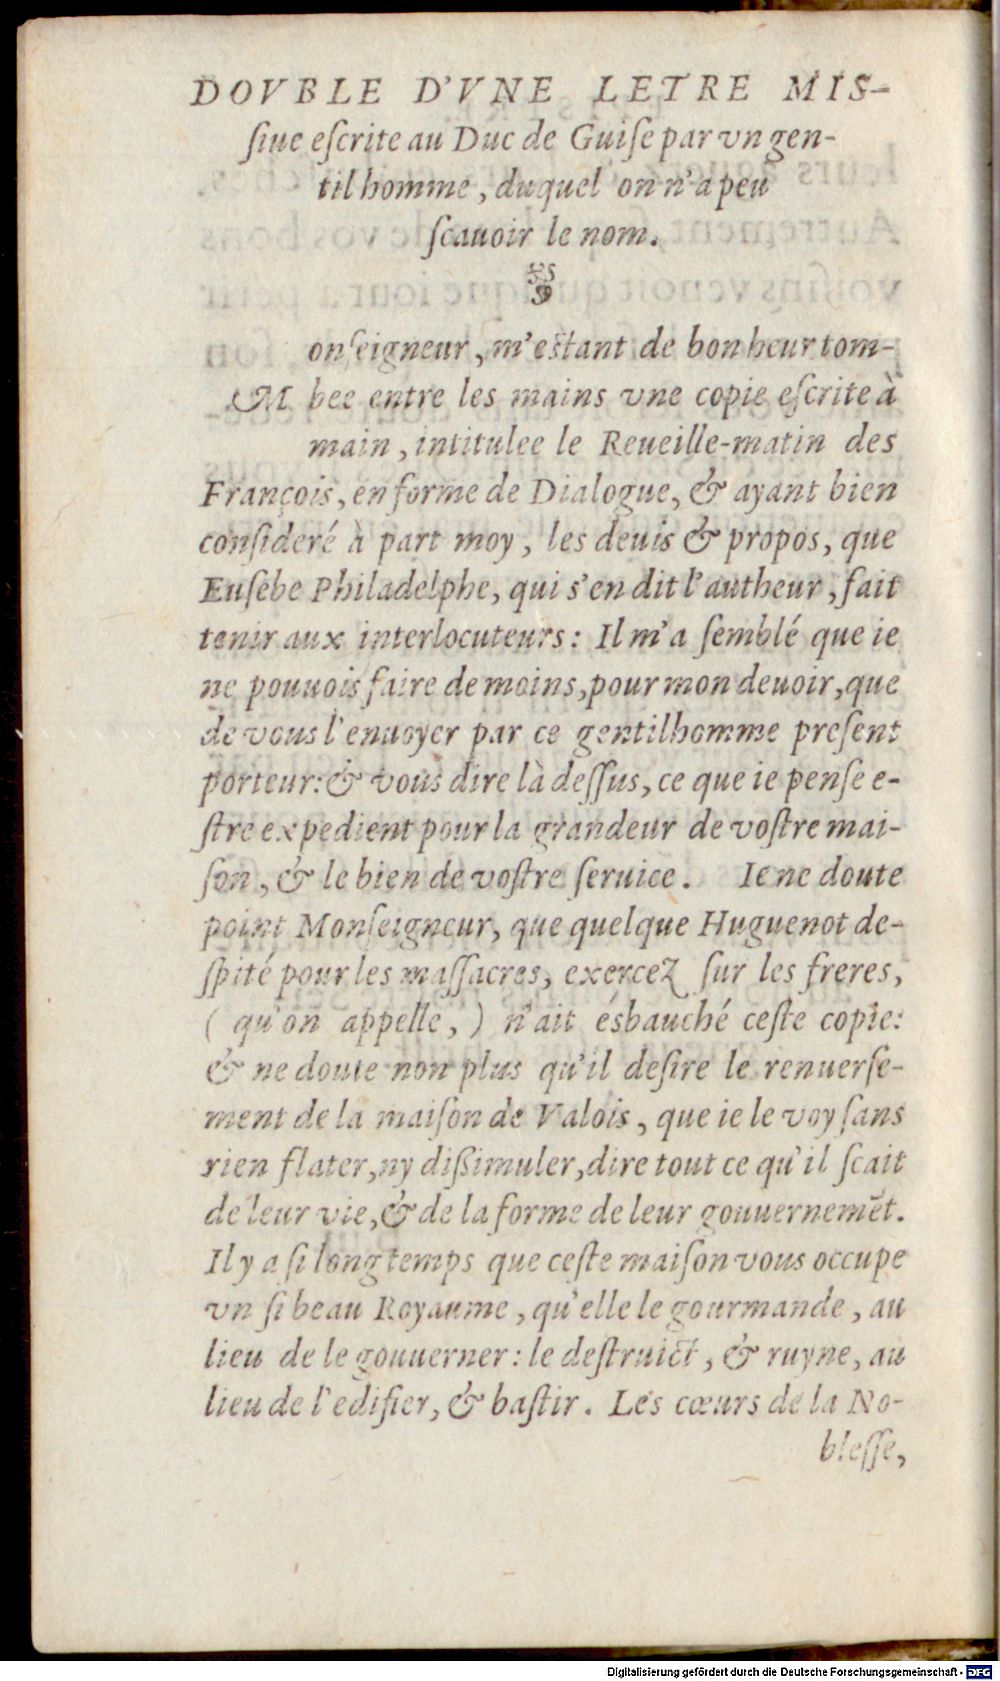 DOVBLE D'VNE LETRE MIS-
ſiue eſcrite au Duc de Guiſe par vn gen-
til homme, duquel on n'a peu
ſcauoir le nom.
onſeigneur, m'eſtant de bonheur tom-
M bee entre les mains vne copie eſcrite à
main, intitulee le Reueille-matin des
François, en forme de Dialogue, & ayant bien
conſideré à part moy, les deuis & propos, que
Euſebe Philadelphe, qui s'en dit l'autheur, fait
tenir aux interlocuteurs: Il m'a ſemblé que ie
ne pouuois faire de moins, pour mon deuoir, que
de vous l'enuoyer par ce gentilhomme preſent
porteur: & vous dire là deſſus, ce que ie penſe e-
ſtre expedient pour la grandeur de voſtre mai-
ſon, & le bien de voſtre ſeruice. Ie ne doute
point Monſeigneur, que quelque Huguenot de-
ſpité pour les maſſacres, exercez ſur les freres,
( qu'on appelle, ) n'ait esbauché ceſte copie:
& ne doute non plus qu'il deſire le renuerſe-
ment de la maiſon de Valois, que ie le voy ſans
rien flater, ny dißimuler, dire tout ce qu'il ſcait
de leur vie, & de la forme de leur gouuernemēt.
Il y a ſi long temps que ceſte maiſon vous occupe
vn ſi beau Royaume, qu'elle le gourmande, au
lieu de le gouuerner: le deſtruict, & ruyne, au
lieu de l'edifier, & baſtir. Les cœurs de la No-
bleſſe,
Digitalisierung gefördert durch die Deutsche Forschungsgemeinschaft - DFG